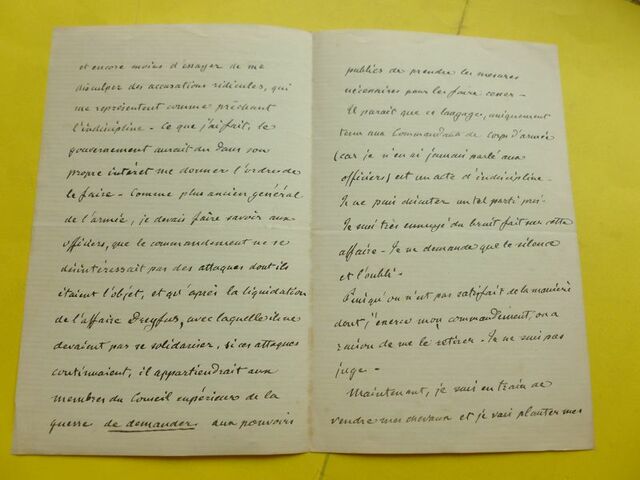 et encore moins d'essayer de me
disculper des accusations ridicules, qui
me représentent comme prêchant
l'indiscipline - Ce que j'ai fait, le
gouvernement aurait du dans son
propre intérêt me donner l'ordre de
le faire - Comme plus ancien général
de l'armée, je devais faire savoir aux
officiers, que le commandement ne se
désintéressait pas des attaques dont ils
étaient l'objet, et qu'après la liquidation
de l'affaire Dreyfus, avec laquelle ils ne
devaient pas se solidariser, si ces attaques
continuaient, il appartiendrait aux
membres du Conseil supérieur de la
guerre de demander aux pouvoirs
publics de prendre les mesures
nécessaires pour les faire cesser -
Il parait que ce langage, uniquement
tenu aux Commandants de corps d'armée
(car je n'en ai jamais parlé aux
officiers) est un acte d'indiscipline -
Je ne puis discuter un tel parti pris -
Je suis très ennuyé du bruit fait sur cette
affaire - Je ne demande que le silence
et l'oubli -
Puisqu'on n'est pas satisfait de la manière
dont j'exerce mon commandement, on a
raison de me le retirer - Je ne suis pas
juge -
Maintenant, je suis en train de
vendre mes chevaux et je vais planter mes